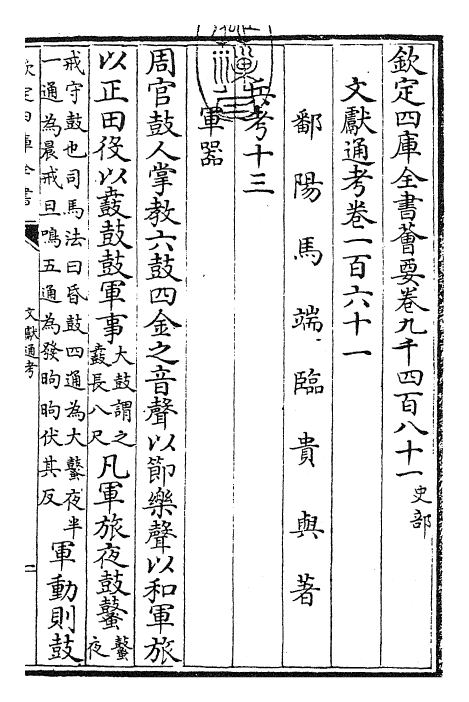 欽定四庫全書薈要卷九千四百八十一 史部
文獻通考卷一百六十一
鄱陽馬端臨貴與著
兵考十三
軍器
周官鼓人掌教六鼓四金之音聲以節樂聲以和軍旅
以正田役以鼖鼓鼓軍事大鼓謂之鼖鼖長八尺凡軍旅夜鼓鼜鼜夜
戒守鼓也司馬法曰昏鼓四通為大鼜夜半一通為晨戒旦鳴五通為發昫昫伏其反軍動則鼓
欽定四庫全書
文獻通考
一